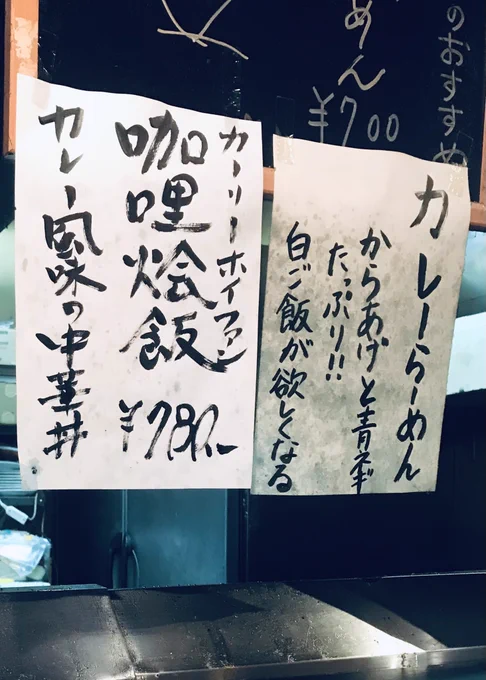 のおすすめ
めん
¥700
カレーらーめん
からあげと青ネギ
たっぷり!!
白ご飯が欲しくなる
カーリーホイファン
咖哩烩飯
¥780.-
カレー風味の中華丼